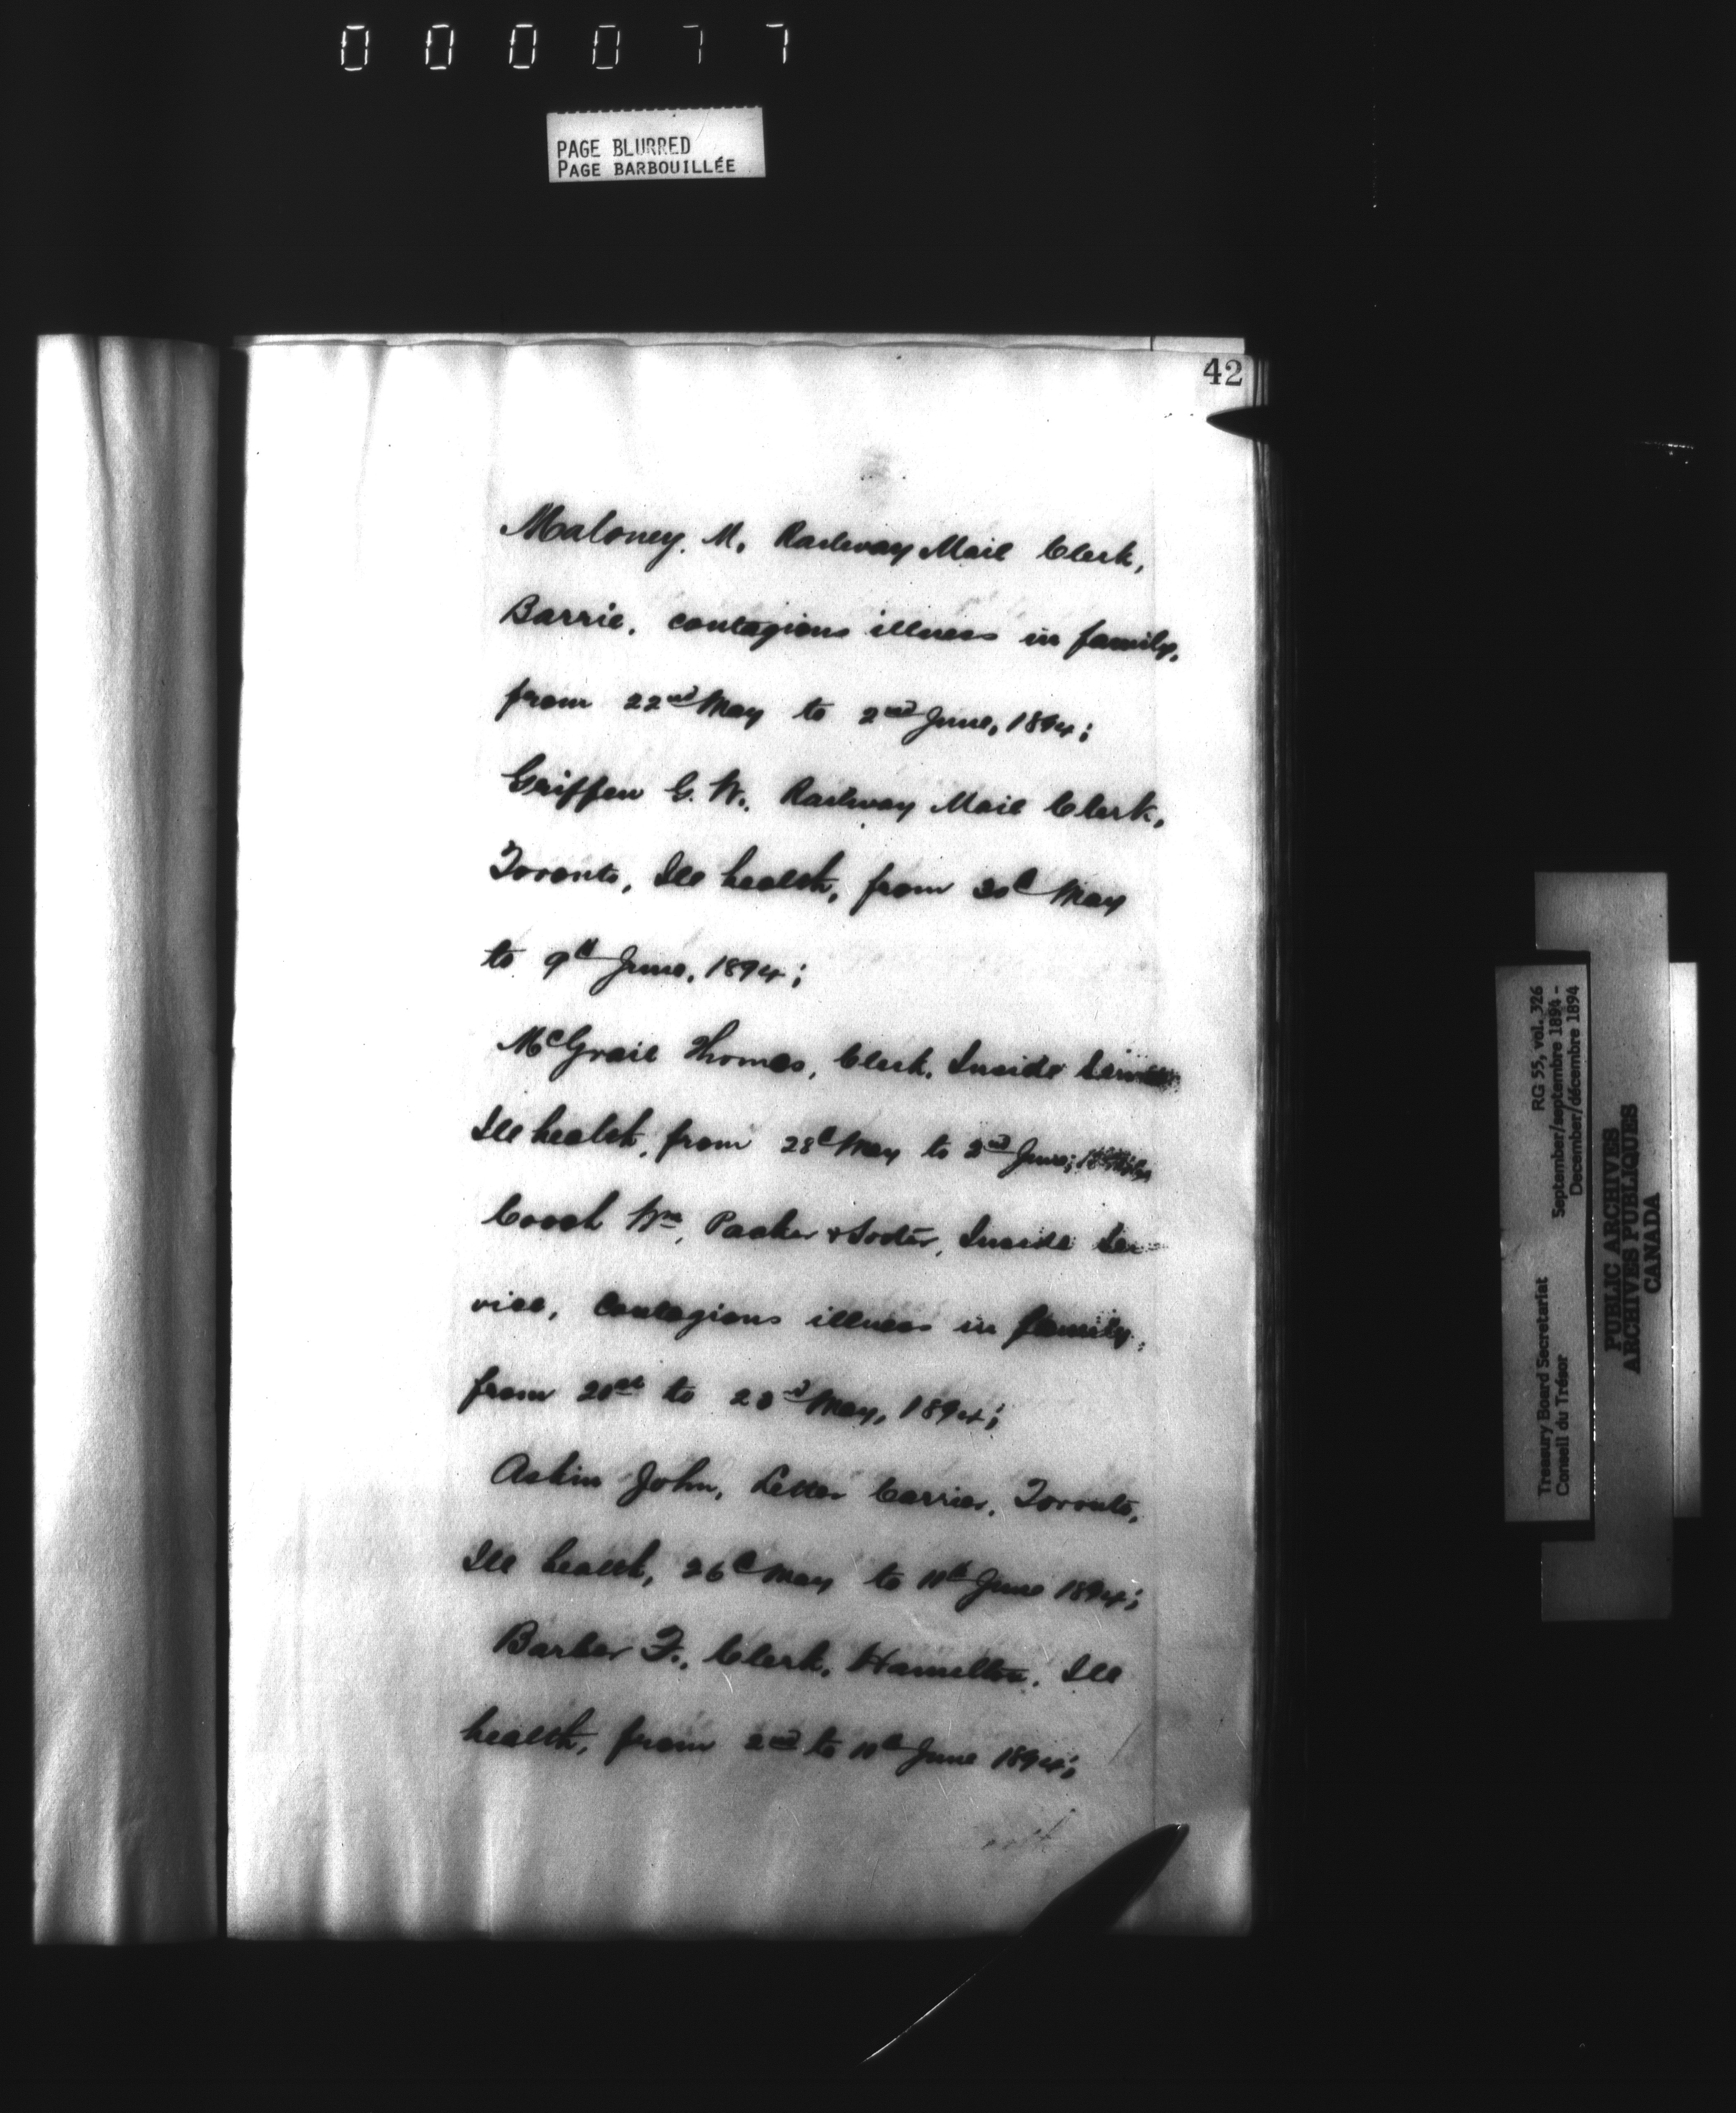 000077
PAGE BLURRED
PAGE BARBOUILLÉE
42
Maloney, M. Railway Mail Clerk,
Barrie, contagious illness in family,
from 22nd May to 2nd June, 1894;
Griffen G. W. Railway Mail Clerk,
Toronto, Ill health, from 30th May
to 9th June, 1894;
McGrail Thomas, Clerk, Inside Service
Ill health, from 28th May to 2nd June;
Wm, Packer & Sorter, Inside Ser-
vice, Contagious illness in family,
from to 23rd May, 1894;
Askin John, Letter Carrier, Toronto,
Ill health, 26th May to 11th June 1894;
Barber F., Clerk, Hamilton, Ill
health, from 2nd to 11th June 1894;
Treasury Board Secretariat
Conseil du Trésor
RG 55, vol. 326
September/septembre 1894 -
December/décembre 1894
PUBLIC ARCHIVES
ARCHIVES PUBLIQUES
CANADA